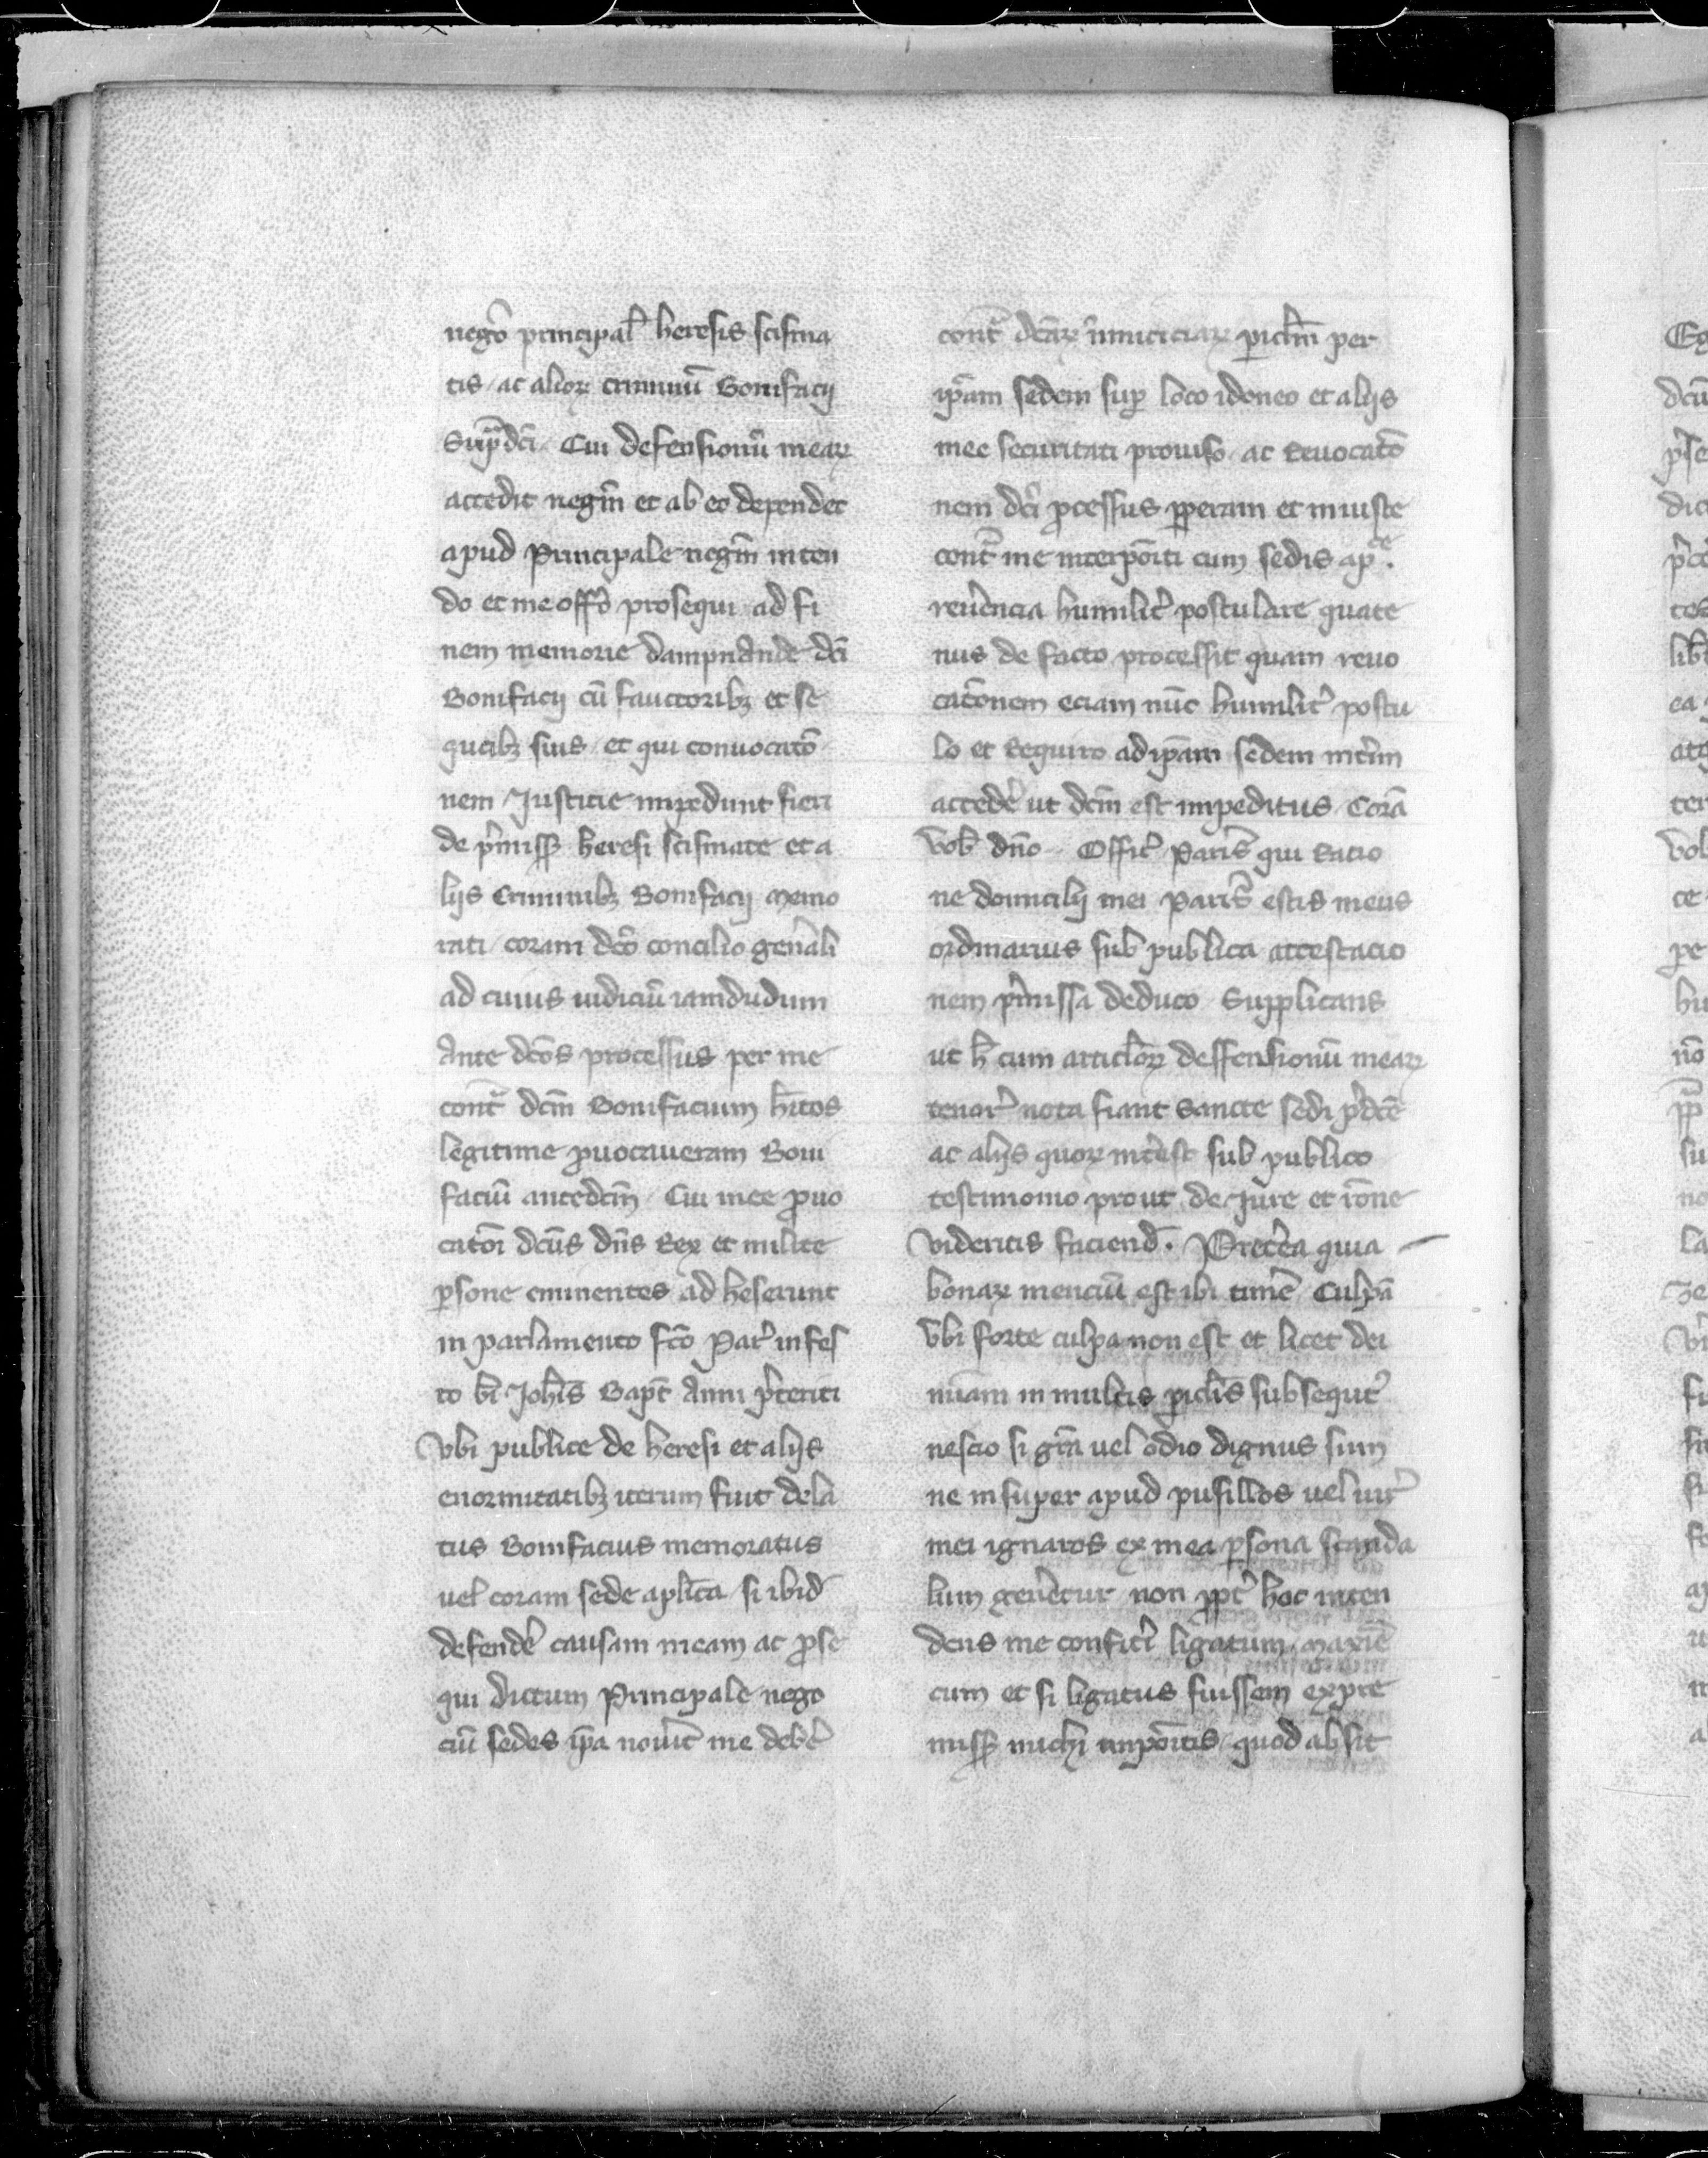 negō principal̛ heresis scisma
tis / ac alioꝝ criminū Bonifacij
Sup̄dcī. Cui defensionū meaꝝ
accedit negm̄ et ab eo dependet
apud Principale negm̄ inten
do et me offō prosequi ad fi
nem memorie dampnande dcī
Bonifacij cū fauctoribꝫ et se
quacibꝫ suis / et qui conuocatō
nem Justicie impedunt fieri
de p̄miss̄ heresi scismate et a
lijs Criminibꝫ Bonifacij memo
rati / coram dcō concilio gen̄ali
ad cuius iudiciū iamdudum
Ante dcōs processus per me
cont̄ dcm̄ Bonifacium hītos
legitime ꝓuocaueram Boni
faciū antedcm̄ / Cui mee ꝓuo
catōi dcūs dn̄s Rex et milite
ꝑsone eminentes ad heserunt
in parlamento fcō Par̛ in fes
to bī Joh̄is Bapt̄ Anni p̄teriti
Vbi publice de heresi et alijs
enormitatibꝫ iterum fuit dela
tus Bonifacius memoratus
uel coram sede aplīca si ibid̄
defende̛ causam meam ac ꝓse
qui dictum Principale nego
ciū sedes ip̄a nouit̄ me debe̛
cont̄ dcāꝝ inimiciciaꝝ ꝑiclm̄ per
ip̄am sedem suꝑ loco idoneo et alijs
mee securitati prouiso / ac Reuocatō
nem dcī ꝓcessus ꝑperam et iniuste
cont̄ me interpōiti cum sedis apᶜᵉ.
reưencia humilit̛ postulare quate
nus de facto processit quam reuo
catōnem eciam nūc humilit̛ postu
lo et Requiro ad ip̄am sedem int̛im
accede̛ ut dcm̄ est impeditus Corā
Vob̄ dn̄o Offic̛ Paris̄ qui Racio
ne domicilij mei Paris̄ estis meus
ordinarius sub publica attestacio
nem p̄missa deduco Supplicans
ut h̄ cum articl̄oꝝ deffensionū meaꝝ
tenor̛ nota fiant Sancte sedi p̄dcē
ac alijs quoꝝ int̛est sub publico
testimonio prout de Jure et rōne
Videritis faciend̄. Pret̛ea quia
bonaꝝ menciū est ibi time̛ Culpā
Vbi forte culpa non est et licet dei
mīam in multis ꝑicl̄is subsequt̛
nescio si gr̄a uel odio dignus sim
ne insuper apud pusillos uel uir̛
mei ignaros ex mea ꝑsona scanda
lum gen̛etur non ꝓpt̛ hoc inten
dens me confite̛i ligatum / maxīe
cum et si ligatus fuissem ex pre
miss̄ michi impōitis / quod absit